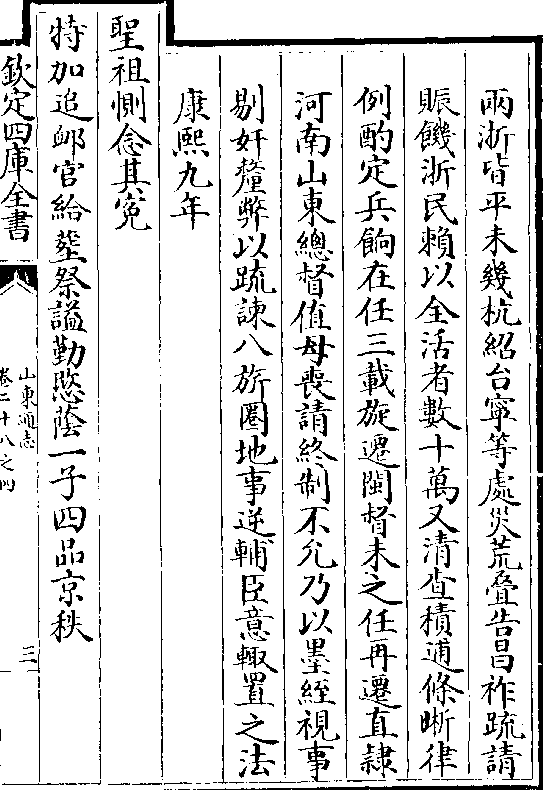 兩浙皆平未幾杭紹台寧等處災荒疊告昌祚疏請
賑饑浙民賴以全活者數十萬又清查積逋條晰律
例酌定兵餉在任三載旋遷閩督未之任再遷直隷
河南山東總督值母喪請終制不允乃以墨絰視事
剔奸釐弊以疏諫八旂圏地事逆輔臣意輙置之法
康熙九年
聖祖惻念其寃
特加追䘏官給塟祭謚勤愍蔭一子四品京秩
欽定四庫全書
山東通志
卷二十八之四
三